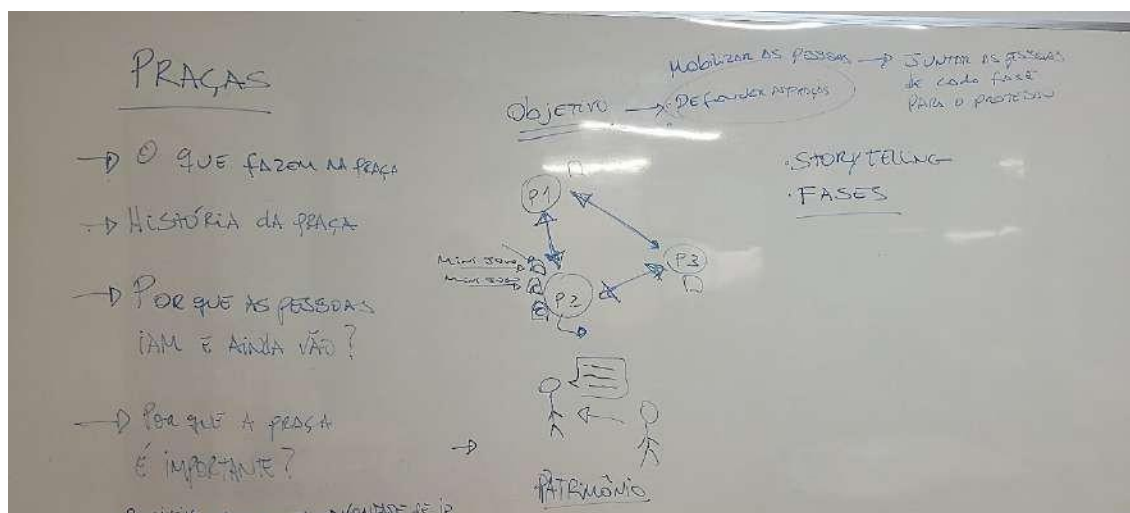 PRAÇAS
→ O QUE FAZEM NA PRAÇA
→ HISTÓRIA DA PRAÇA
→ POR QUE AS PESSOAS
IAM E AINDA VÃO?
→ POR QUE A PRAÇA
É IMPORTANTE?
MOBILIZAR AS PESSOAS → JUNTAR AS PESSOAS
de cada fase
PARA O PROTESTO
Objetivo → DEFENDER AS PRAÇAS
P1
P3
MINI JOGO
MINI JOGO
P2
PATRIMÔNIO
· STORYTELLING
· FASES